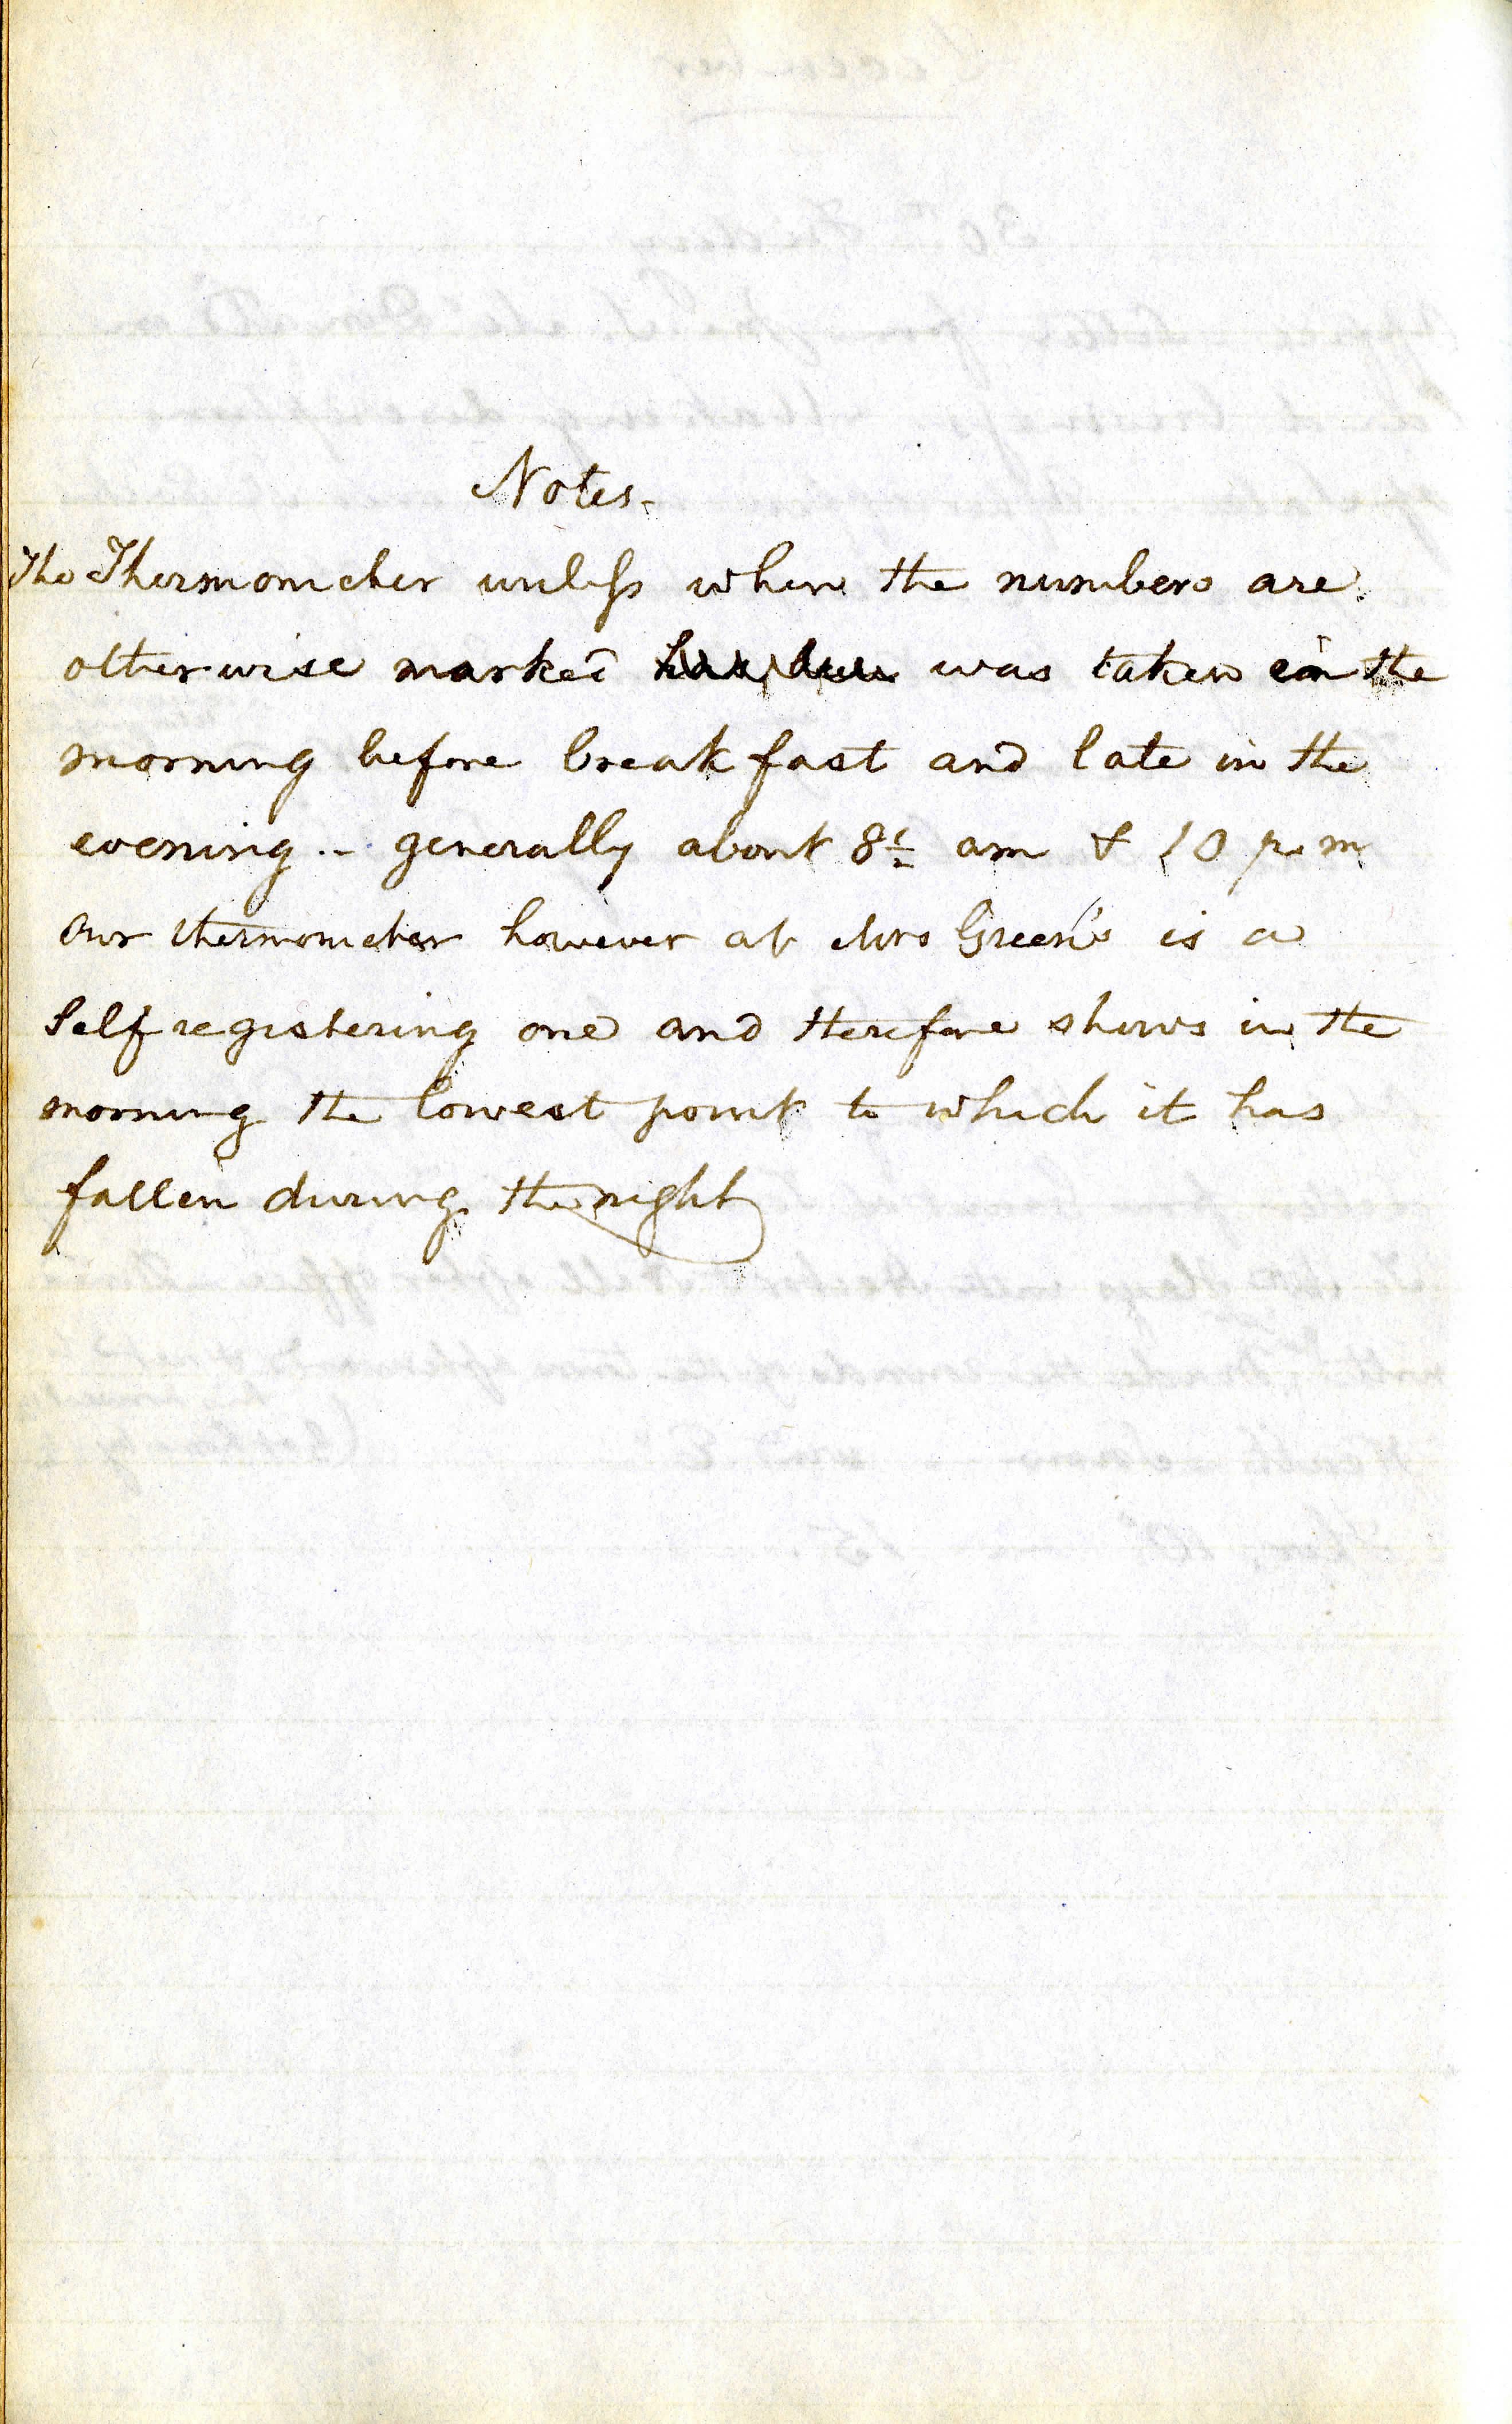 Notes-
The Thermometer unless when the numbers are
otherwise marked has been was taken in the
morning before breakfast and late in the
evening.- generally about 8½ am & 10 p.m
Our thermometer however at Mrs Green's is a
Self registering one and therefore shows in the
morning the lowest point to which it has
fallen during the night